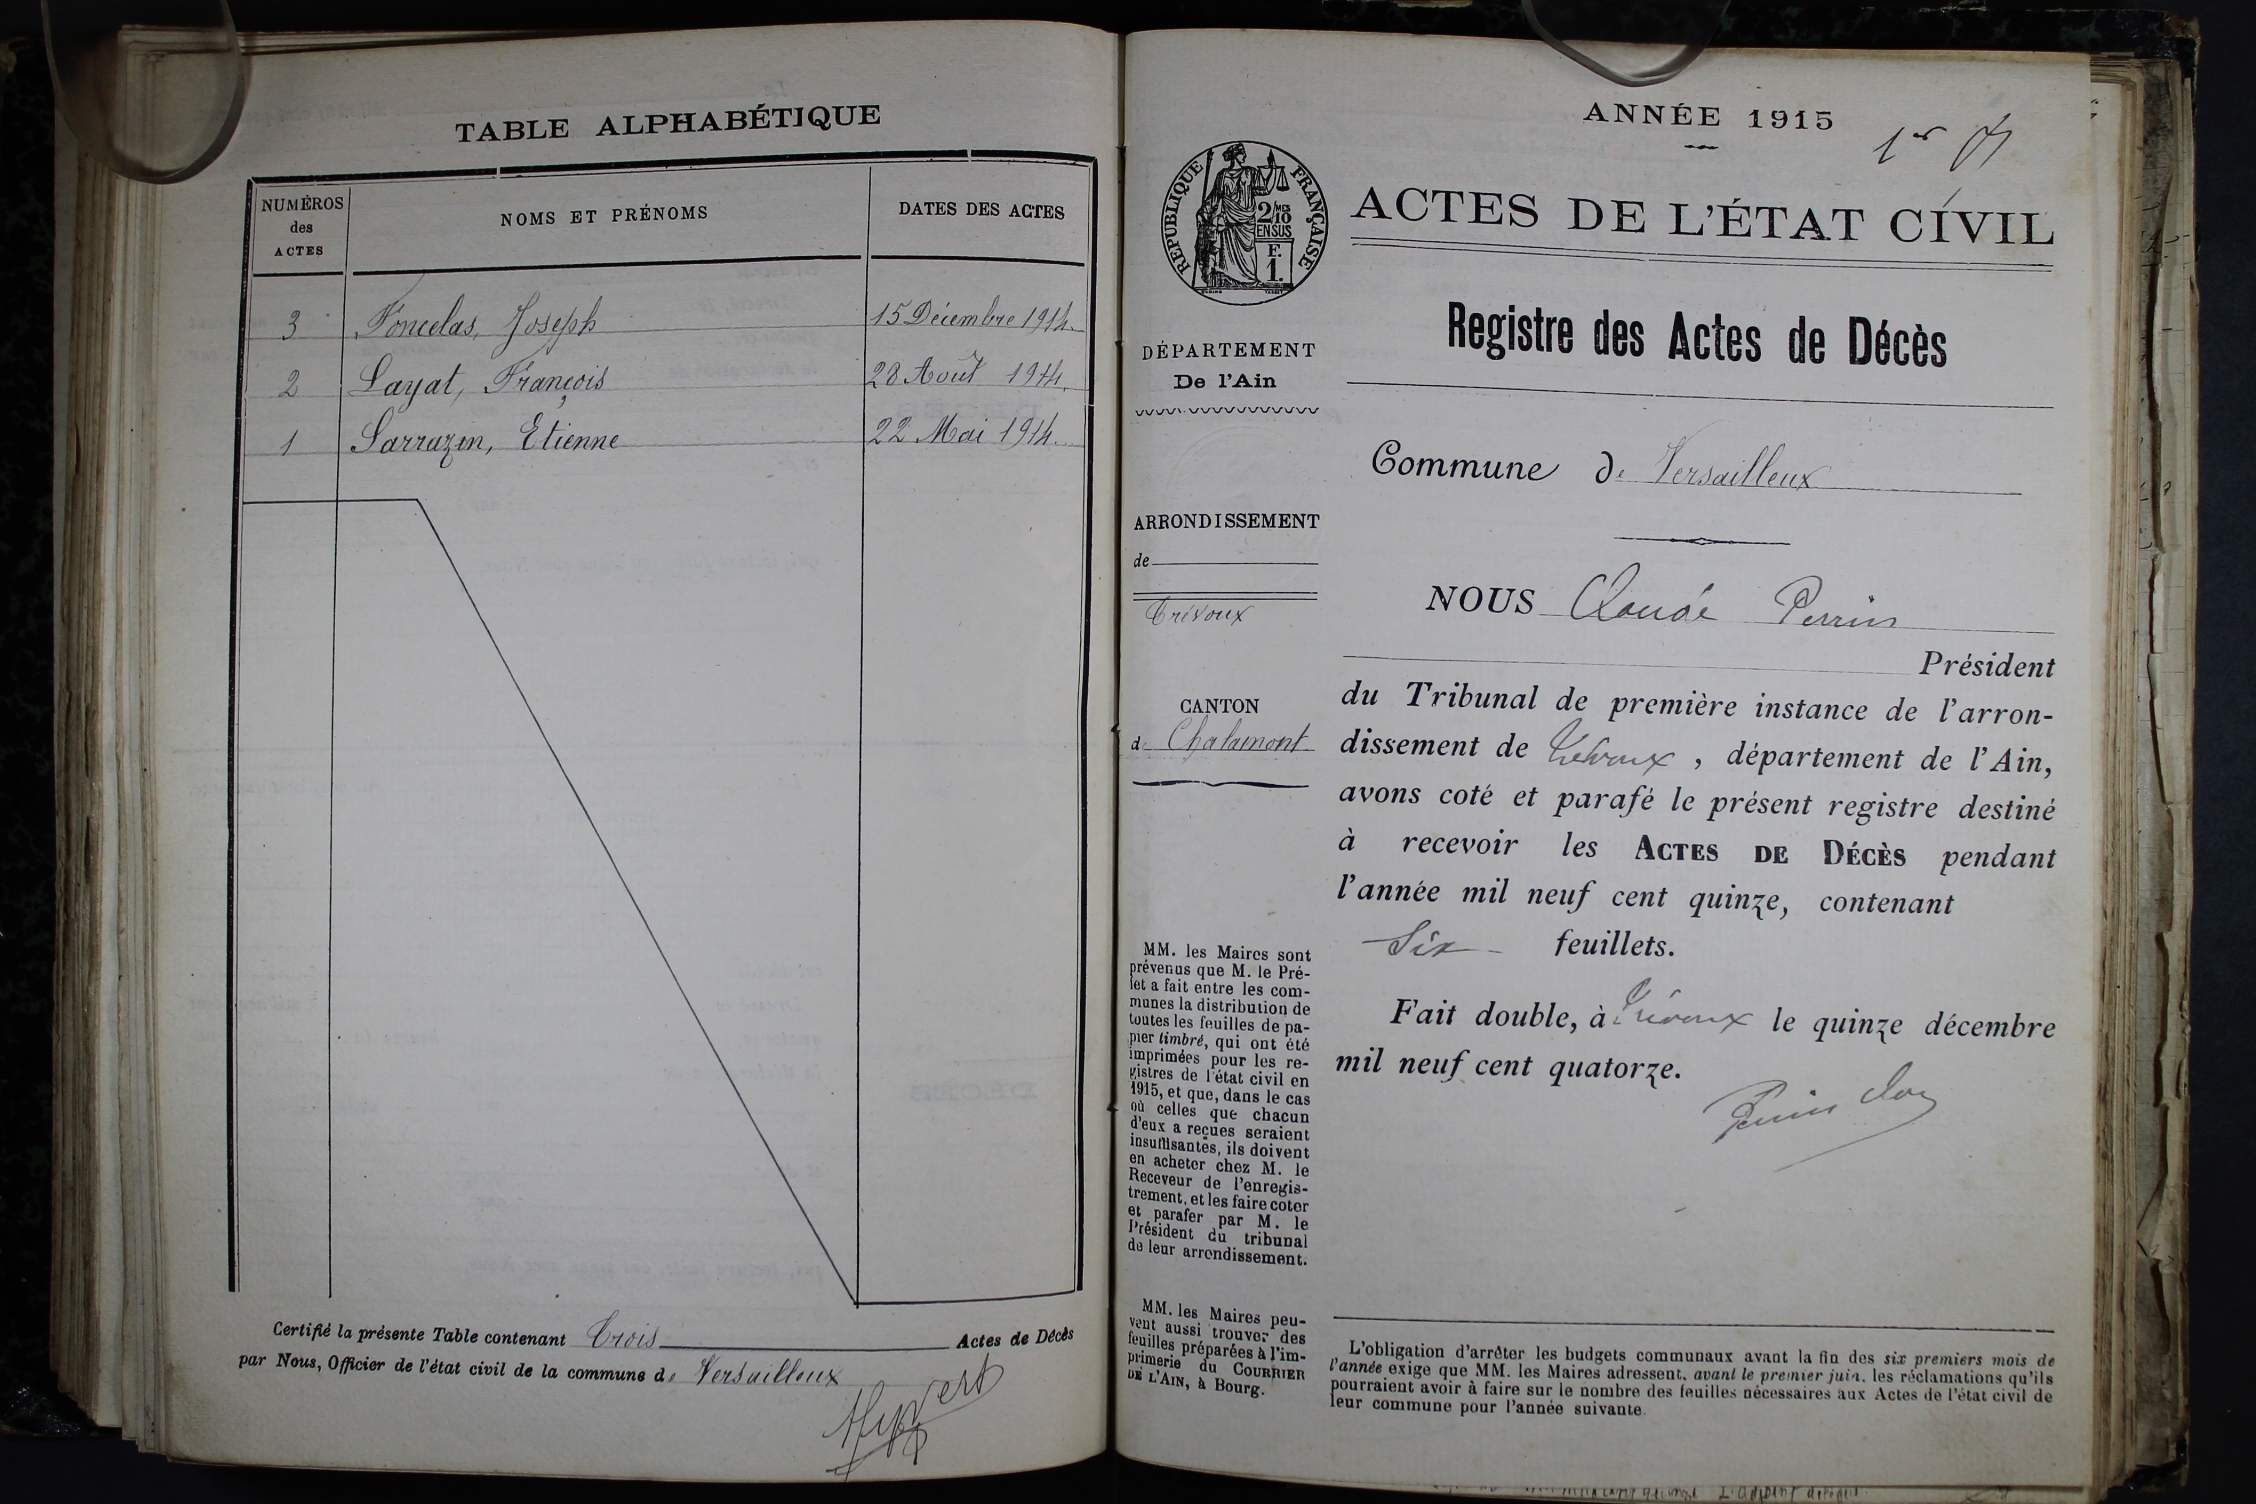 TABLE ALPHABÉTIQUE
NUMÉROS
des
ACTES
NOMS ET PRÉNOMS
DATES DES ACTES
3 Foncelas, Joseph 15 Décembre 1914.
2 Layat, François 28 Août 1914.
1 Sarrazin, Etienne 22 Mai 1914.
Certifié la présente Table contenant Trois Actes de Décès
par Nous, Officier de l'état civil de la commune de Versailleux
Hyvert
ANNÉE 1915
1er
RÉPUBLIQUE FRANÇAISE
2/MES
10
EN SUS
F.
1.
ACTES DE L'ÉTAT CIVIL
Registre des Actes de Décès
DÉPARTEMENT
De l'Ain
Commune de Versailleux
ARRONDISSEMENT
de
Trévoux
CANTON
de Chalamont
NOUS Claude Perrin
Président
du Tribunal de première instance de l'arron-
dissement de Trévoux, département de l'Ain,
avons coté et parafé le présent registre destiné
à recevoir les ACTES DE DÉCÈS pendant
l'année mil neuf cent quinze, contenant
Six feuillets.
Fait double, à Trévoux le quinze décembre
mil neuf cent quatorze.
Perrin
MM. les Maires sont
prévenus que M. le Pré-
fet a fait entre les com-
munes la distribution de
toutes les feuilles de pa-
pier timbré, qui ont été
imprimées pour les re-
gistres de l'état civil en
1915, et que, dans le cas
où celles que chacun
d'eux a reçues seraient
insuffisantes, ils doivent
en acheter chez M. le
Receveur de l'enregis-
trement, et les faire coter
et parafer par M. le
Président du tribunal
de leur arrondissement.
MM. les Maires peu-
vent aussi trouver des
feuilles préparées à l'im-
primerie du COURRIER
DE L'AIN, à Bourg.
L'obligation d'arrêter les budgets communaux avant la fin des six premiers mois de
l'année exige que MM. les Maires adressent, avant le premier juin, les réclamations qu'ils
pourraient avoir à faire sur le nombre des feuilles nécessaires aux Actes de l'état civil de
leur commune pour l'année suivante.